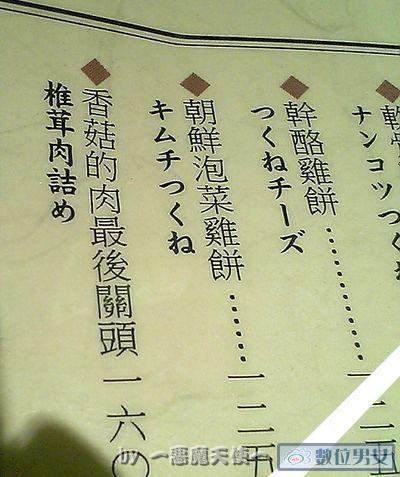 軟骨
ナンコツつく
幹酪雞餅.............一二五
つくねチーズ
朝鮮泡菜雞餅.........一二五
キムチつくね
香菇的肉最後關頭 一六〇
椎茸肉詰め
by ～惡魔天使～
數位男女